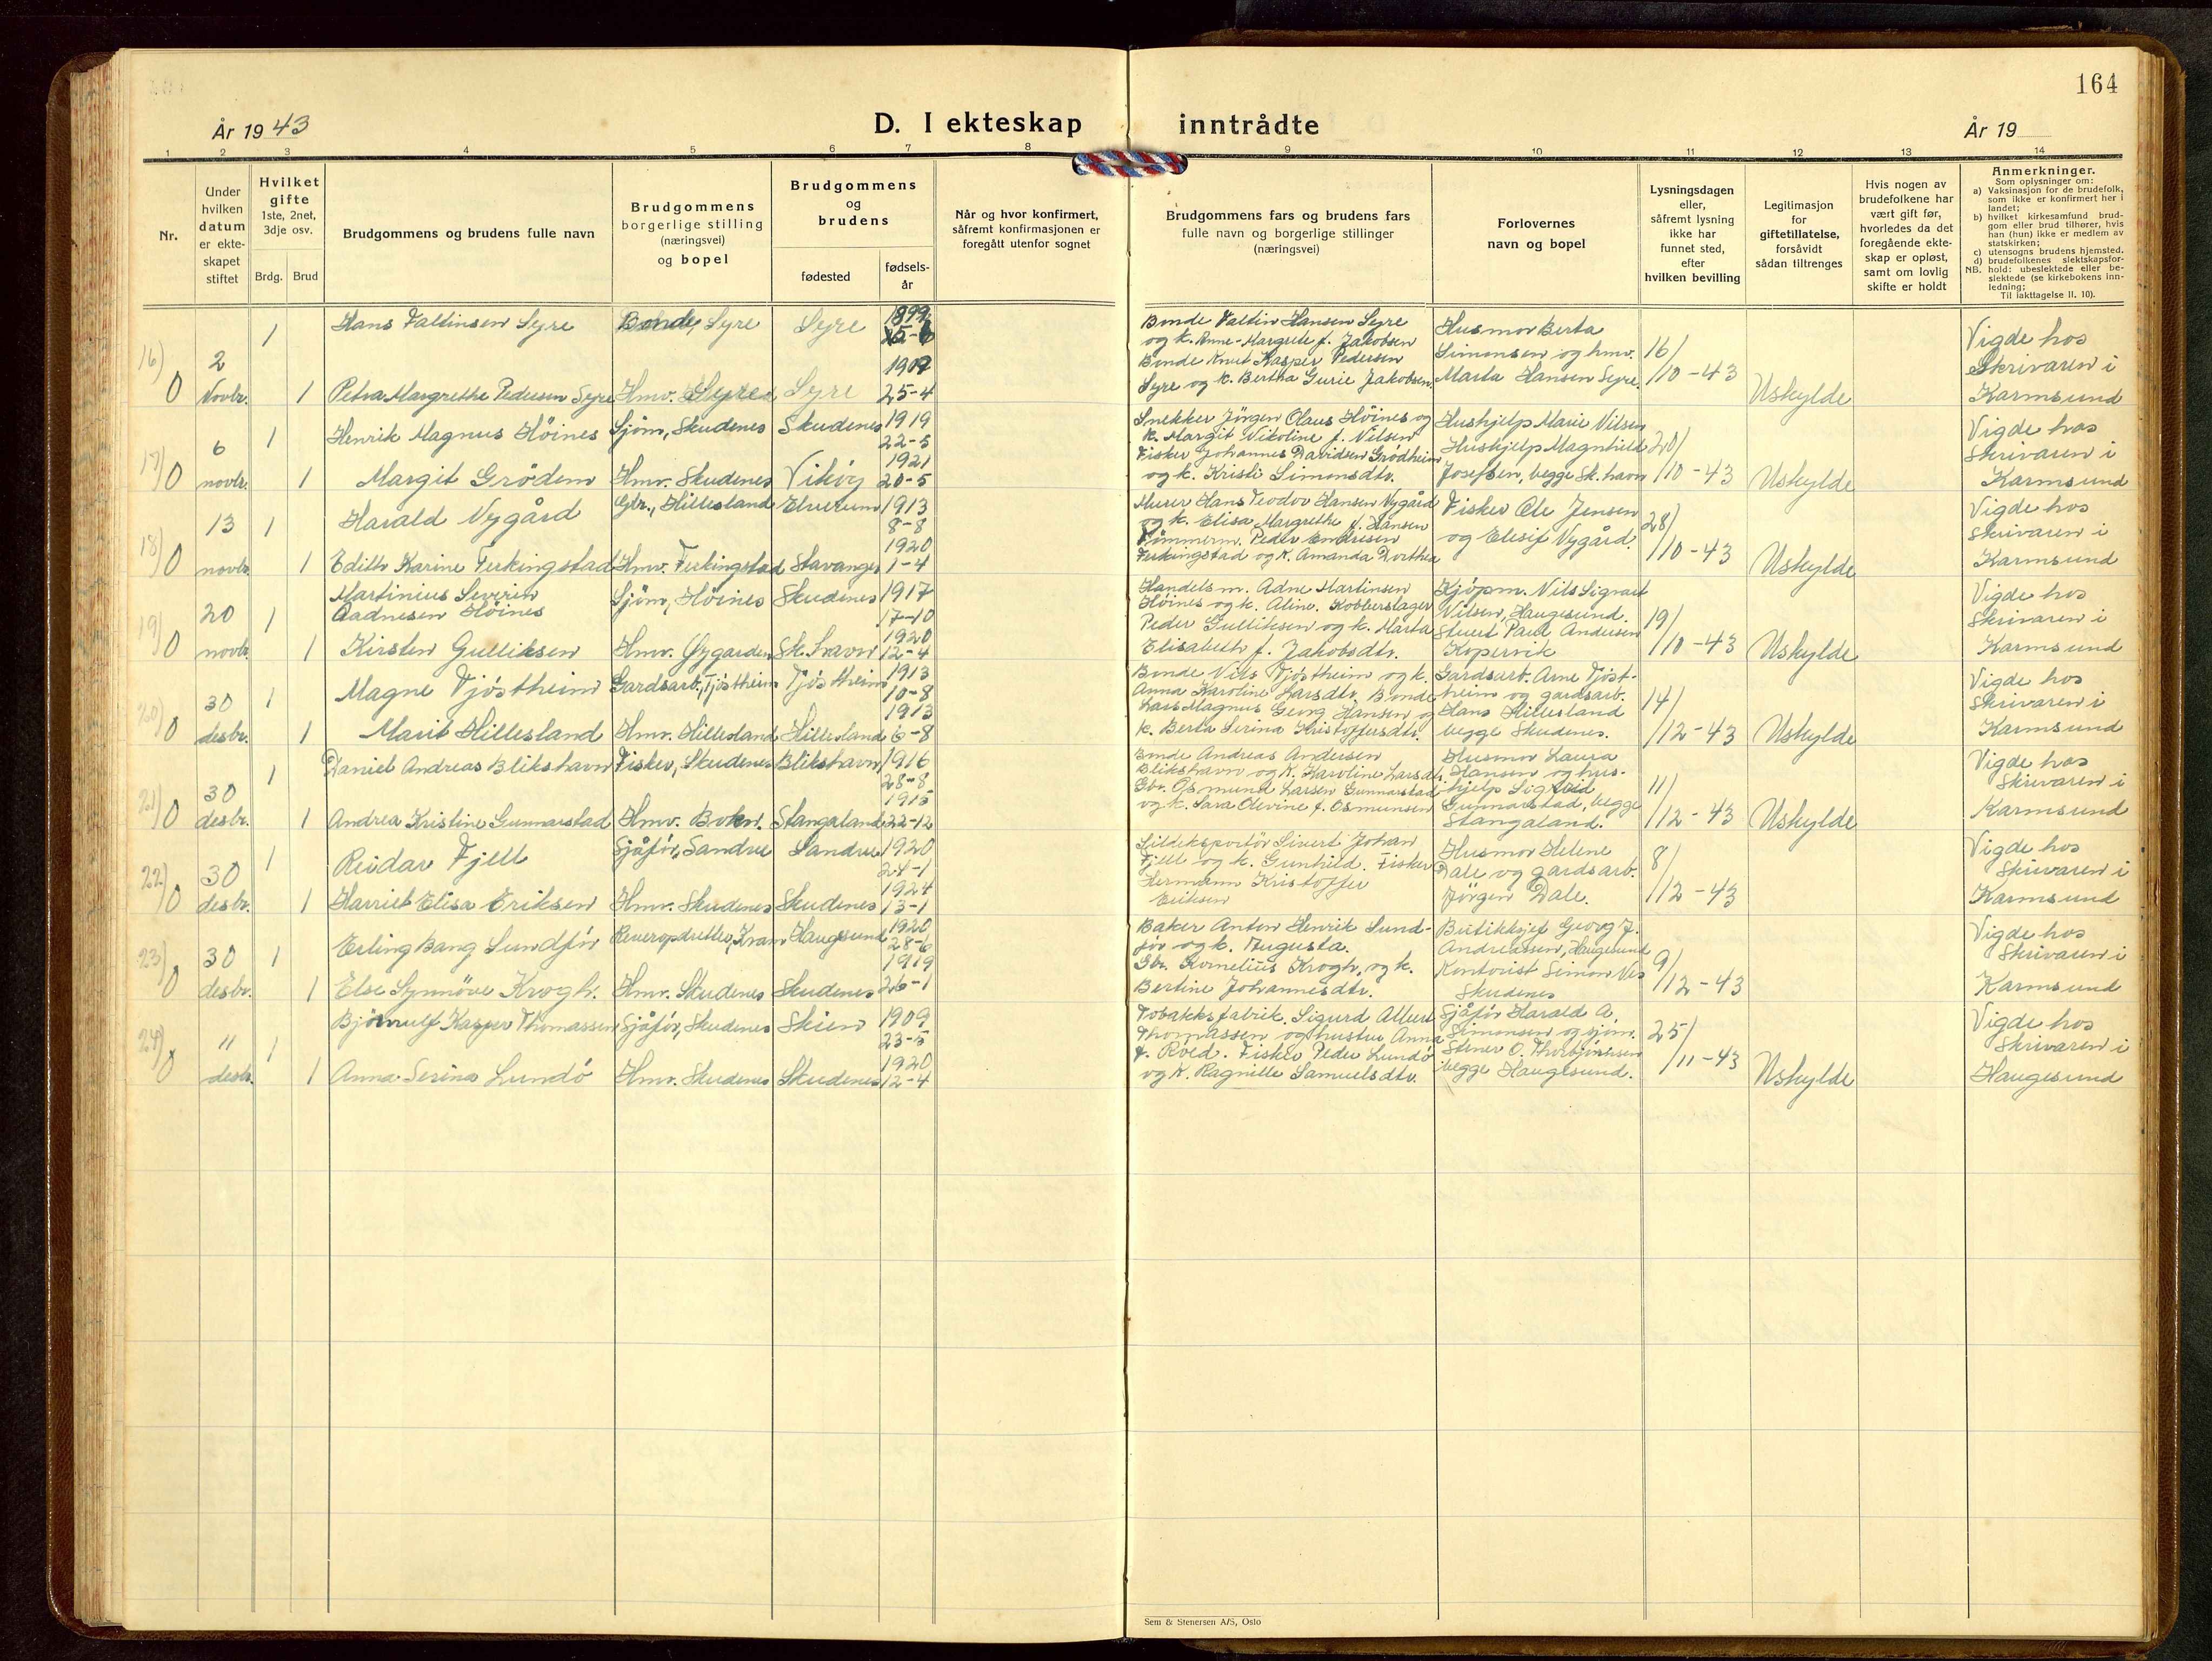 164
År 1943
D. I ekteskap
inntrådte
År 19
1 2 3 4 5 6 7 8 9 10 11 12 13 14
Nr.
Under
hvilken
datum
er ekte-
skapet
stiftet
Hvilket
gifte
1ste, 2net,
3dje osv.
Brdg. Brud
Brudgommens og brudens fulle navn
Brudgommens
borgerlige stilling
(næringsvei)
og bopel
Brudgommens
og
brudens
fødested
fødsels-
år
Når og hvor konfirmert,
såfremt konfirmasjonen er
foregått utenfor sognet
Brudgommens fars og brudens fars
fulle navn og borgerlige stillinger
(næringsvei)
Forlovernes
navn og bopel
Lysningsdagen
eller,
såfremt lysning
ikke har
funnet sted,
efter
hvilken bevilling
Legitimasjon
for
giftetillatelse,
forsåvidt
sådan tiltrenges
Hvis nogen av
brudefolkene har
vært gift før,
hvorledes da det
foregående ekte-
skap er opløst,
samt om lovlig
skifte er holdt
Anmerkninger.
Som oplysninger om:
a) Vaksinasjon for de brudefolk,
som ikke er konfirmert her i
landet;
b) hvilket kirkesamfund brud-
gom eller brud tilhører, hvis
han (hun) ikke er medlem av
statskirken;
c) utensogns brudens hjemsted.
d) brudefolkenes slektskapsfor-
hold: ubeslektede eller be-
slektede (se kirkebokens inn-
ledning;
NB.
Til iakttagelse II. 10).
16) 0
2
Novbr.
1
Hans Valtinsen Syre
Bonde, Syre
Syre
1899
1
Petra Margrethe Pedersen Syre
Hmv. Syre
Syre
25-4
Bonde Valtin Hansen Syre
og k. Anne-Margrete f. Jakobsen
Bonde Knut Kasper Pedersen
Syre og k. Bertha Gurie Jakobsen.
Husmor Berta
Simonsen og hmv.
Marta Hansen Syre
16/
/10-43
Uskylde
Vigde hos
Skrivaren i
Karmsund
17) 0
6
novbr.
1
Henrik Magnus Höines
Sjöm, Skudenes
Skudenes
1919
22-5
1
Margit Grödem
Hmv. Skudenes
Viköy
1921
20-5
Snekker Jörgen Olaus Höines og
k. Margit Nikoline f. Nilsen
Fisker Johannes Davidsen Grödheim
og k. Kristi Simonsdtr.
Hushjelp Marie Nilsen
Hushjelp Magnhild
Josefsen, begge Sk.havn
20/
/10-43
Uskylde
Vigde hos
Skrivaren i
Karmsund
18) 0
13
novbr.
1
Harald Nygård
Gbr., Hillesland
Elverum
1913
8-8
1
Edith Karine Ferkingstad
Hmv. Ferkingstad
Stavanger
1920
1-4
Murer Hans Teodor Hansen Nygård
og k. Elisa Margrethe f. Hansen
Tömmerm. Peder Endresen
Ferkingstad og k. Amanda Dorthea
Fisker Ole Jensen
og Elisif Nygård.
28/
/10-43
Uskylde
Vigde hos
Skrivaren i
Karmsund
19) 0
20
novbr.
1
Martinius Severin
Aadnesen Höines
Sjöm, Höines
Skudenes
1917
17-10
1
Kirsten Gulliksen
Hmv. Øygarden
Sk.havn
1920
12-4
Handelsm. Adne Martinsen
Höines og k. Aline. Kobberslager
Peder Gulliksen og k. Marta
Elisabeth f. Jakobsdtr.
Kjöpm. Nils Signart
Nilsen, Haugesund.
Stuert Paul Andersen
Kopervik
19/
/10-43
Uskylde
Vigde hos
Skrivaren i
Karmsund
20) 0
30
desbr.
1
Magne Tjöstheim
Gardsarb., Tjöstheim
Tjöstheim
1913
10-8
1
Marit Hillesland
Hmv. Hillesland
Hillesland
1913
6-8
Bonde Nils Tjöstheim og k.
Anna Karoline Larsdtr. Bonde
Lars Magnus Georg Hansen og
k. Berta Serina Kristoffersdtr.
Gardsarb. Arne Tjöst-
heim og gardsarb.
Hans Hillesland
begge Skudenes.
14/
/12-43
Uskylde
Vigde hos
Skrivaren i
Karmsund
21) 0
30
desbr.
1
Daniel Andreas Blikshavn
Fisker, Skudenes
Blikshavn
1916
28-8
1
Andrea Kristine Gunnarstad
Hmv. Bokn.
Stangaland
1915
22-12
Bonde Andreas Andersen
Blikshavn og k. Karoline Larsdt.
Gbr. Osmund Larsen Gunnarstad
og k. Sara Olevine f. Osmunsen
Husmor Laura
Hansen og hus-
hjelp Sigveid
Gunnarstad, begge
Stangaland.
11/
/12-43
Uskylde
Vigde hos
Skrivaren i
Karmsund
22) 0
30
desbr.
1
Reidar Fjell
Sjåför, Sandve
Sandve
1920
24-1
1
Harriet Elisa Eriksen
Hmv. Skudenes
Skudenes
1924
13-1
Sildeksportör Sivert Johan
Fjell og k. Gunhild. Fisker
Hermann Kristoffer
Eriksen
Husmor Helene
Dale og gardsarb.
Jörgen Dale.
8/
/12-43
Vigde hos
Skrivaren i
Karmsund
23) 0
30
desbr.
1
Erling Bang Sundför
Reveropdretter, Kvam
Haugesund
1920
28-6
1
Else Synnöve Krogh.
Hmv. Skudenes
Skudenes
1919
26-1
Baker Anton Henrik Sund-
för og k. Augusta.
Gbr. Kornelius Krogh, og k.
Bertine Johannesdtr.
Butikksjef Georg J.
Andreassen, Haugesund
Kontorist Simon Nes
Skudenes
9/
/12-43
Vigde hos
Skrivaren i
Karmsund
24) 0
"
desbr.
1
Björnulf Kasper Thomassen
Sjåför, Skudenes
Skien
1909
23-5
1
Anna Serina Lundö
Hmv. Skudenes
Skudenes
1920
12-4
Tobakksfabrik. Sigurd Albert
Thomassen og hustru Anna
f. Roed. Fisker Peder Lundö
og k. Ragnille Samuelsdtr.
Sjåför Harald A.
Simonsen og sjöm.
Stener O. Thorbjörnsen
begge Haugesund.
25/
/11-43
Uskylde
Vigde hos
Skrivaren i
Haugesund
Sem & Stenersen A/S, Oslo